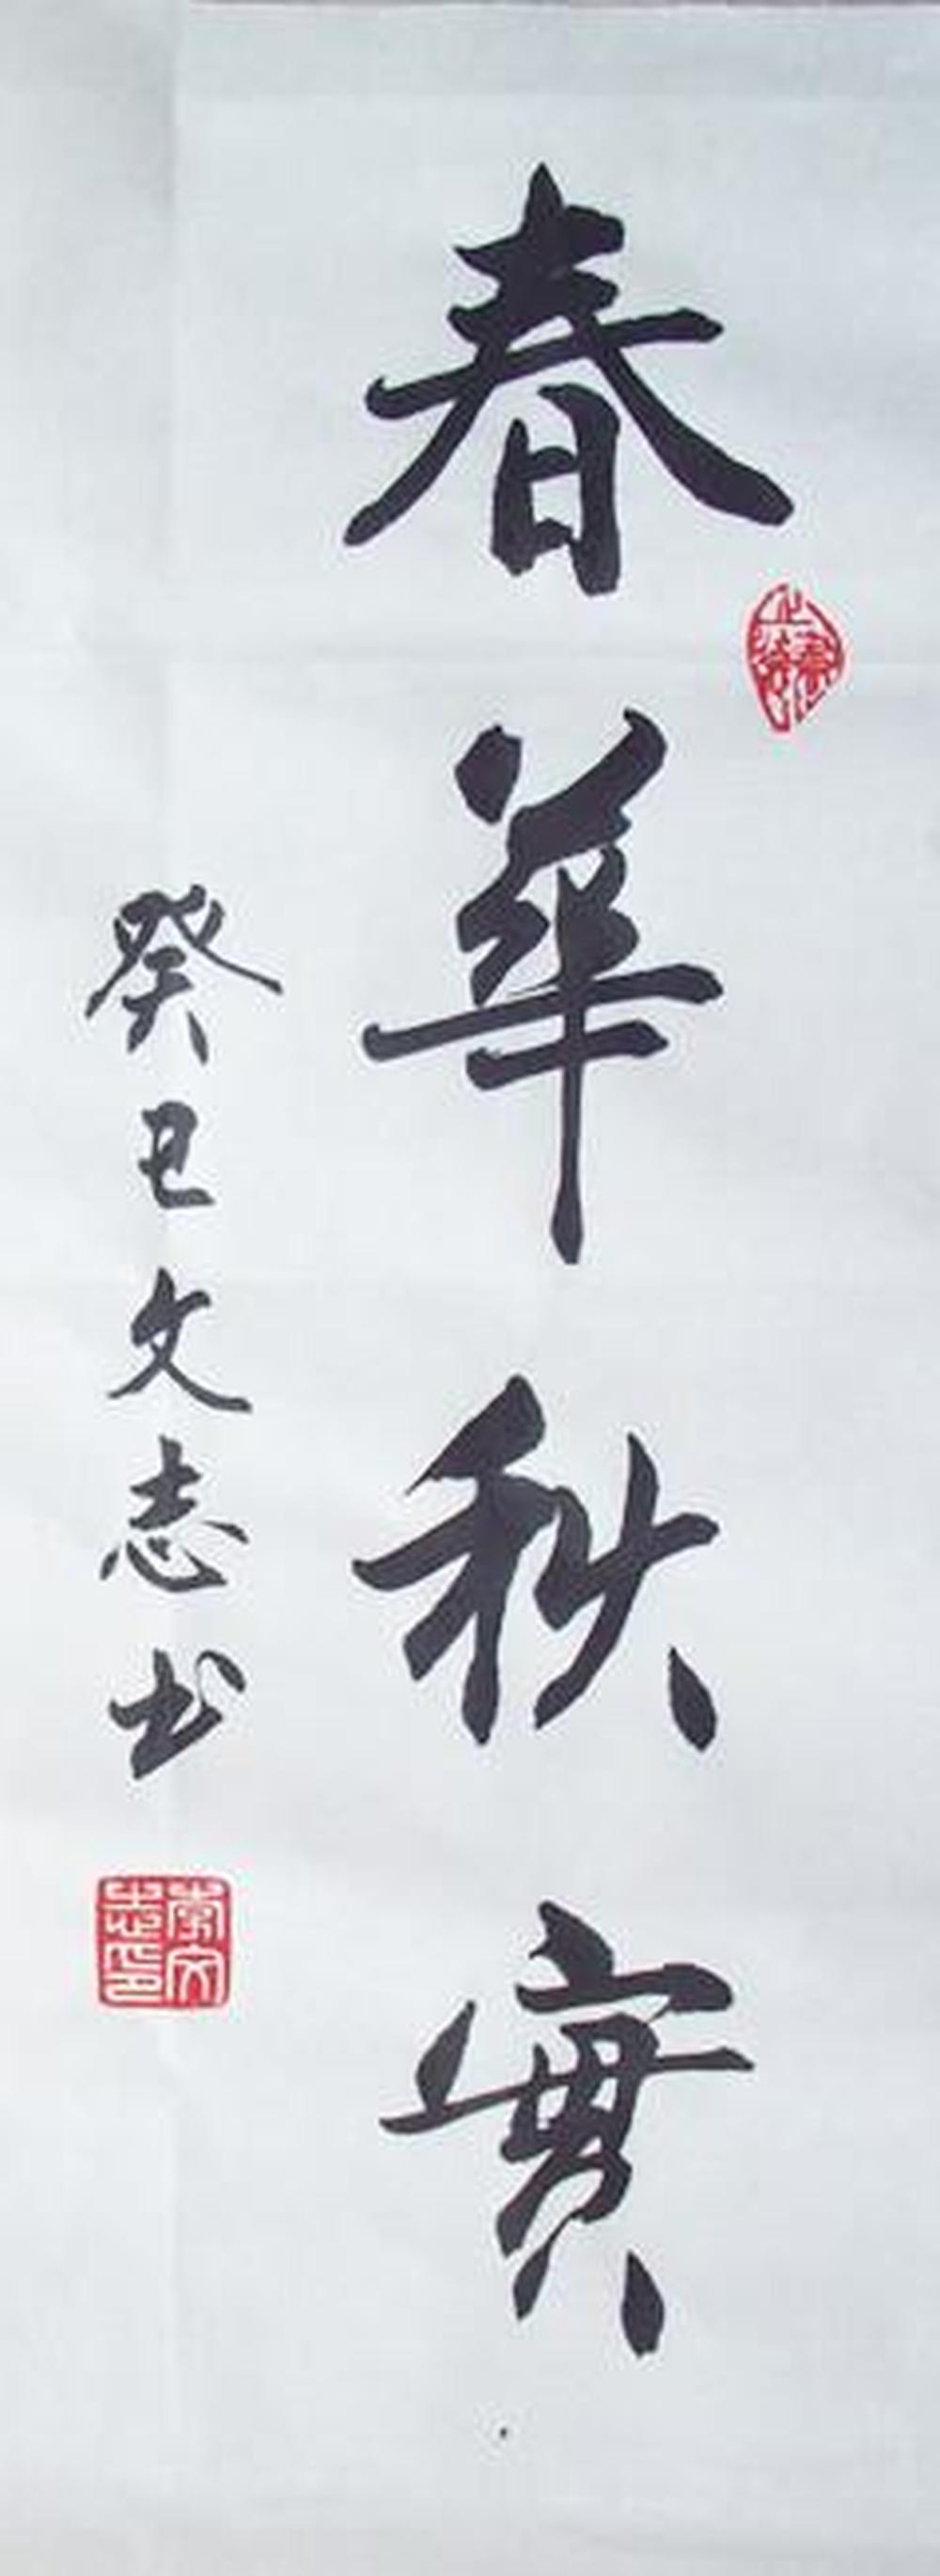 春華秋實
癸巳文志书